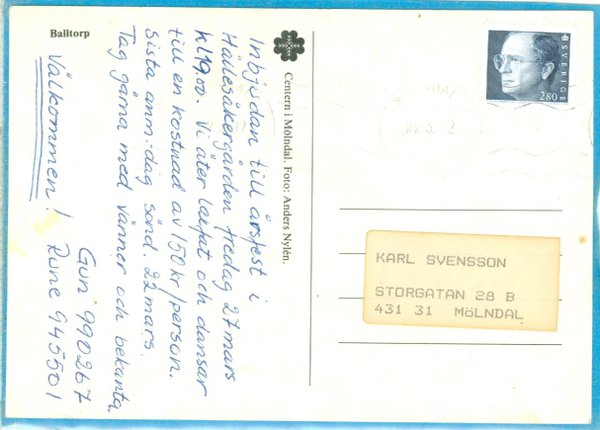 Balltorp
Centern i Mölndal. Foto: Anders Nylén.
Inbjudan till årsfest i
Hällesåkergården fredag 27 mars
kl 19.00. Vi äter laxfat och dansar
till en kostnad av 150 kr/person.
Sista anm.-dag sönd. 22 mars.
Tag gärna med vänner och bekanta.
Välkommen!
Gun 990267
Rune 945501
SVERIGE
280
KARL SVENSSON
STORGATAN 28 B
431 31 MöLNDAL